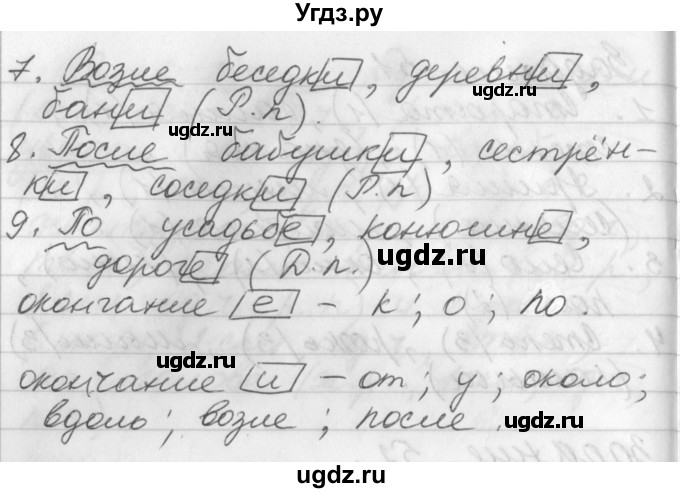 Угдз.ру
7. Возле беседки, деревни,
бани (Р.п).
ugdz.ru
ugdz.ru
8. После бабушки, сестрён-
ки, соседки (Р.п)
ugdz.ru
9. По усадьбе, конюшне,
дороге (Д.п.)
ugdz.ru
окончание е - к; о; по.
ugdz.ru
окончание и - от; у; около;
вдоль; возле; после.
ugdz.ru
ugdz.ru